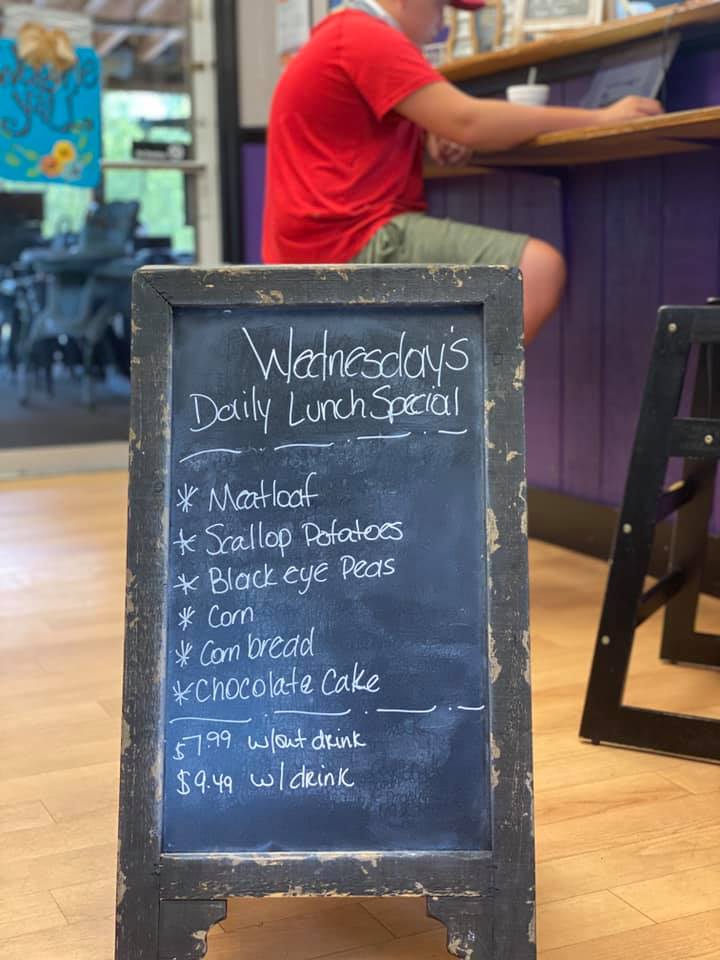 Wednesday's
Daily Lunch Special
* Meatloaf
* Scallop Potatoes
* Black eye Peas
* Corn
* Corn bread
* Chocolate Cake
$7.99 w/out drink
$9.49 w/ drink